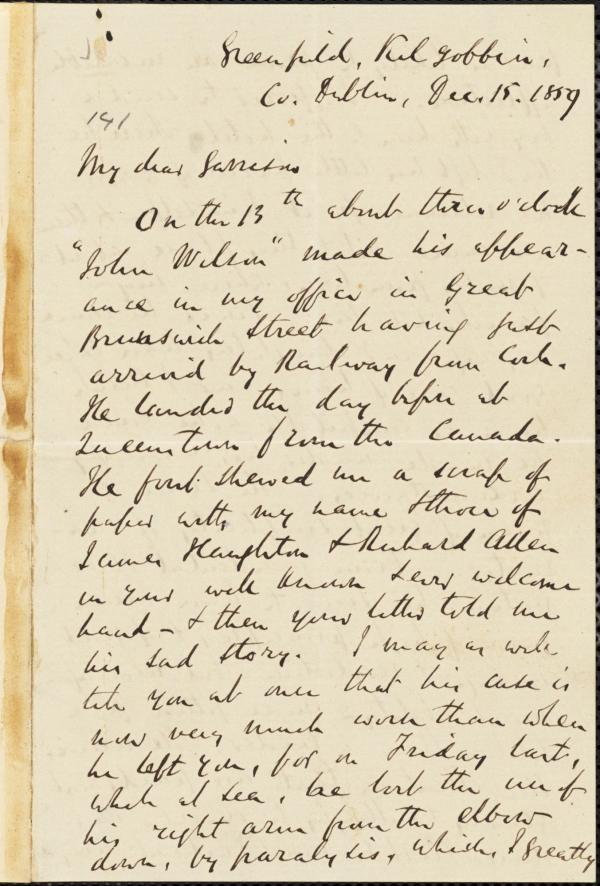 Greenfield, Kilgobbin,
Co. Dublin, Dec. 15. 1859
141
My dear Garrison
On the 13th about three o'clock
"John Wilson" made his appear-
ance in my office in Great
Brunswick Street having just
arrived by Railway from Cork.
He landed the day before at
Queenstown from the Canada.
He first shewed me a scrap of
paper with my name & those of
James Haughton & Richard Allen
in your well known & ever welcome
hand - & then your letter told me
his sad story. I may as well
tell you at once that his case is
now very much worse than when
he left you, for on Friday last,
while at sea, he lost the use of
his right arm from the elbow
down, by paralysis, which, I greatly